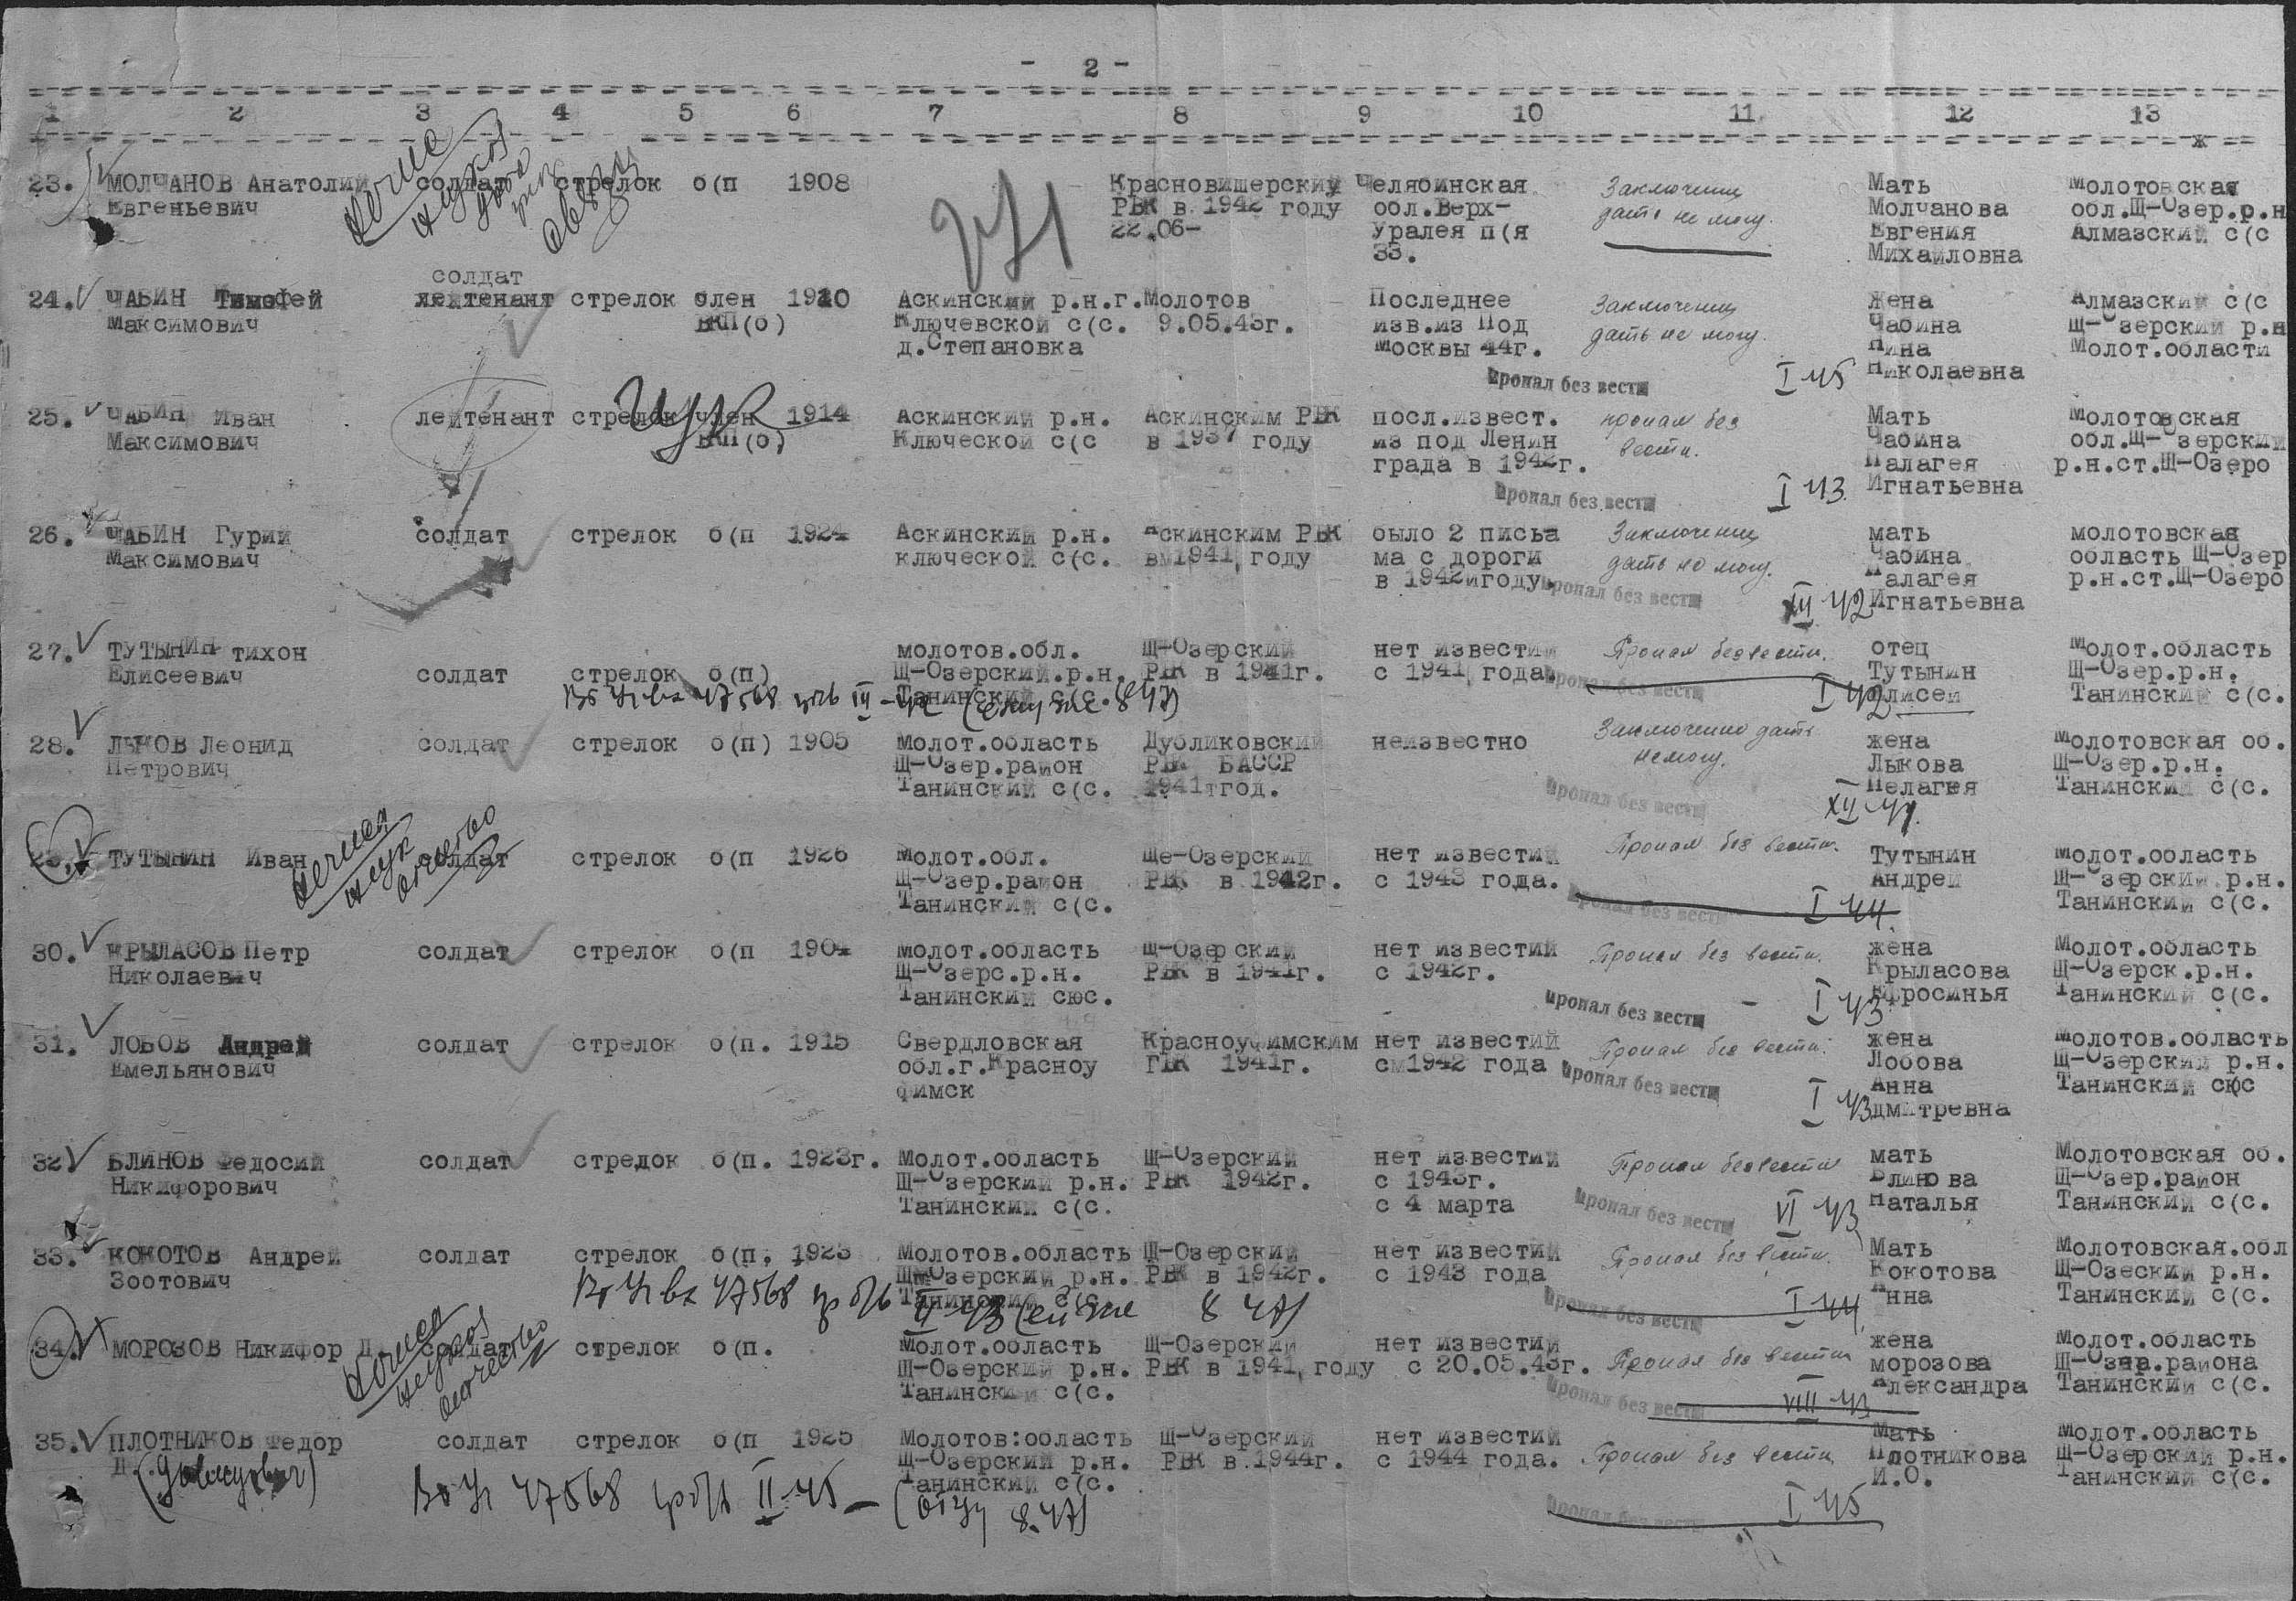 - 2 -
1 2 3 4 5 6 7 8 9 10 11 12 13
23. МОЛЧАНОВ Анатолий солдат стрелок б(п 1908 Красновишерский Челябинская Заключения Мать Молотовская
Евгеньевич РВК в 1942 году обл.Верх- дать не могу. Молчанова обл.Щ-Озер.р.н
22.06- Уралея п(я Евгения Алмазский с(с
33. Михайловна
солдат
24. ЧАБИН Тимофей лейтенант стрелок член 1910 Аскинский р.н. г.Молотов Последнее Заключения жена Алмазский с(с
Максимович ВКП(б) Ключевской с(с. 9.05.43г. изв.из Под дать не могу. Чабина Щ-Озерский р.н
д.Степановка Москвы 44г. Нина Молот.области
пропал без вести I 45 Николаевна
25. ЧАБИН Иван лейтенант стрелок член 1914 Аскинский р.н. Аскинским РВК посл.извест. пропал без Мать Молотовская
Максимович ВКП(б) Ключеской с(с в 1937 году из под Ленин вести. Чабина обл.Щ-Озерский
града в 1942г. Палагея р.н.ст.Щ-Озеро
пропал без вести I 43 Игнатьевна
26. ЧАБИН Гурий солдат стрелок б(п 1924 Аскинский р.н. Аскинским РВК было 2 письа Заключения мать молотовская
Максимович ключеской с(с. в 1941 году ма с дороги дать не могу. Чабина область Щ-Озер
в 1942 году Палагея р.н.ст.Щ-Озеро
пропал без вести XII 42 Игнатьевна
27. ТУТЫНИН тихон молотов.обл. Щ-Озерский нет известий Пропал без вести. отец Молот.область
Елисеевич солдат стрелок б(п) Щ-Озерский.р.н. РВК в 1941г. с 1941 года. Тутынин Щ-Озер.р.н.
Танинский с(с. пропал без вести I 42 Елисей Танинский с(с.
47568
28. ЛЫКОВ Леонид солдат стрелок б(п) 1905 Молот.область Дубликовский неизвестно Заключение дать жена Молотовская об.
Петрович Щ-Озер.район РВК БАССР не могу. Лыкова Щ-Озер.р.н.
Танинский с(с. 1941 год. пропал без вести Пелагея Танинский с(с.
XII 41.
29. ТУТЫНИН Иван солдат стрелок б(п 1926 Молот.обл. Ще-Озерский нет известий Пропал без вести. Тутынин Молот.область
Щ-Озер.район РВК в 1942г. с 1943 года. Андрей Щ-Озерский р.н.
Танинский с(с. пропал без вести I 44. Танинский с(с.
30. КРЫЛАСОВ Петр солдат стрелок б(п 1904 Молот.область Щ-Озерский нет известий Пропал без вести. жена Молот.область
Николаевич Щ-Озерс.р.н. РВК в 1941г. с 1942г. Крыласова Щ-Озерск.р.н.
Танинский сюс. пропал без вести - I 43 Ефросинья Танинский с(с.
31. ЛОБОВ Андрей солдат стрелок б(п. 1915 Свердловская Красноуфимским нет известий Пропал без вести. жена Молотов.область
Емельянович обл.г.Красноу ГВК 1941г. с 1942 года пропал без вести Лобова Щ-Озерский р.н.
фимск Анна Танинский сюс
I 43 Дмитревна
32. БЛИНОВ Федосий солдат стрелок б(п. 1923г. Молот.область Щ-Озерский нет известий Пропал без вести мать Молотовская об.
Никифорович Щ-Озерский р.н. РВК 1942г. с 1943г. Блинова Щ-Озер.район
Танинский с(с. с 4 марта пропал без вести VI 43 Наталья Танинский с(с.
33. КОКОТОВ Андрей солдат стрелок б(п. 1923 Молотов.область Щ-Озерский нет известий Пропал без вести. Мать Молотовская.обл
Зоотович Щ-Озерский р.н. РВК в 1942г. с 1943 года Кокотова Щ-Озеский р.н.
Танинский с(с. пропал без вести I 44. Анна Танинский с(с.
47568 II 43
34. МОРОЗОВ Никифор Д солдат стрелок б(п. Молот.область Щ-Озерский нет известий Пропал без вести жена Молот.область
отчество Щ-Озерский р.н. РВК в 1941 году с 20.05.43г. морозова Щ-Озер.района
Танинский с(с. пропал без вести VIII 43 Александра Танинский с(с.
35. ПЛОТНИКОВ Федор солдат стрелок б(п 1925 Молотов:область Щ-Озерский нет известий Мать Молот.область
Д. Щ-Озерский р.н. РВК в 1944г. с 1944 года. Пропал без вести Плотникова Щ-Озерский р.н.
Танинский с(с. И.О. Танинский с(с.
47568 II 45 - пропал без вести I 45